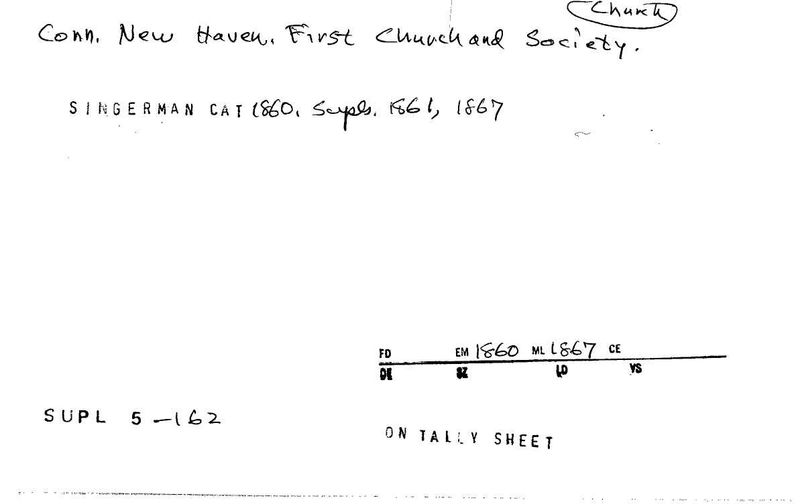 Church
Conn. New Haven. First Church and Society.
SINGERMAN CAT 1860, Supls. 1861, 1867
FD EM 1860 ML 1867 CE
DE SZ LD VS
SUPL 5-162
ON TALLY SHEET